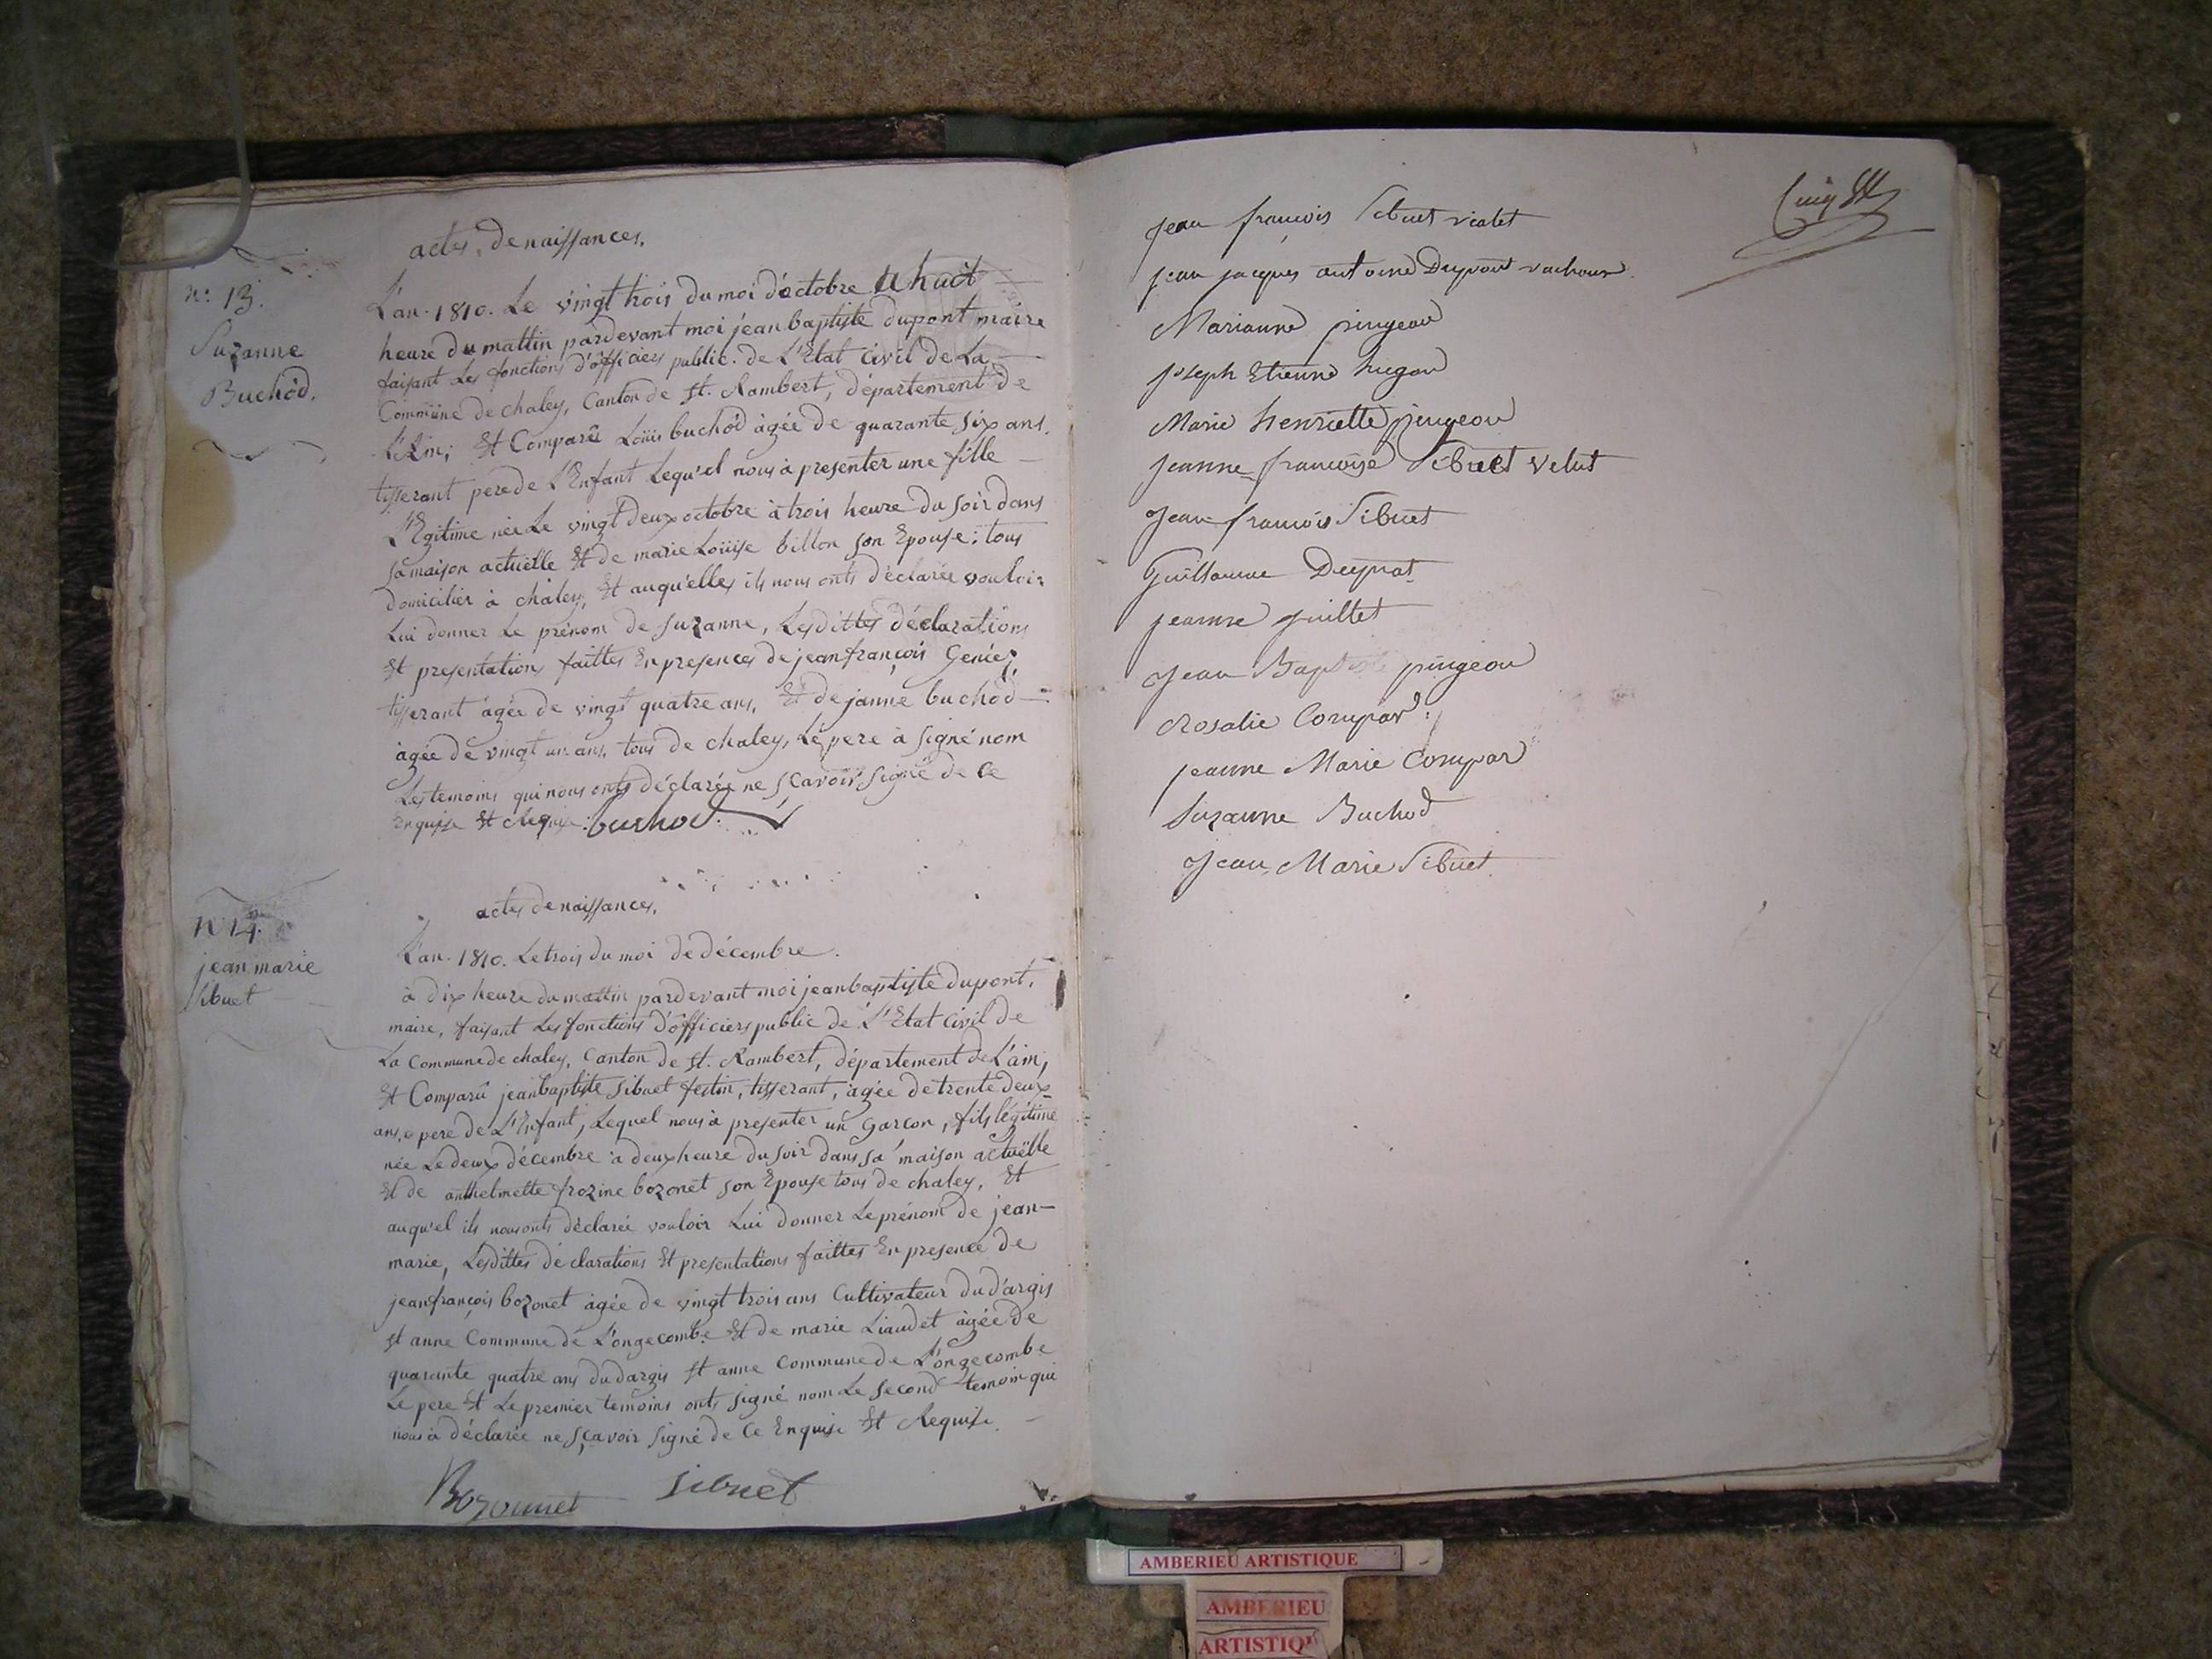 actes de naissances.
n.º 13.
Suzanne
Buchod.
L'an. 1810. Le vingt trois du moi d'octobre a huit
heure du mattin pardevant moi jean baptiste dupont maire
faisant Les fonctions d'officiers public. de L'Etat Civil de La
Commune de chaley, Canton de St. Rambert, département de
L'Ain; Et Comparû Loüis buchod àgée de quarante six ans.
tisserant pere de L'Enfant Lequ'el nous à presenter une fille
L'Egitime née Le vingt deux octobre à trois heure du soir dans
sa maison actuëlle Et de marie Loüise billon son Epouse; tous
domicilier à chaley, Et auqu'elles ils nous onts déclarée vouloir
Lui donner Le prénom de suzanne, Lesdittes déclarations
Et presentations faittes En presences de jean françois Geniez,
tisserant àgée de vingt quatre ans, Et de janne buchod
àgée de vingt un ans, tous de chaley, Le pere à signé nom
Les temoins qui nous onts déclarée ne sçavoir signé de Ce
Enquise Et Requise. buchod.
actes de naissances.
n 14.
jean marie
sibuet
L'an. 1810. Le trois du moi de décembre.
à dix heure du mattin pardevant moi jean baptiste dupont.
maire, faisant Les fonctions d'officiers public de L'Etat Civil de
La Commune de chaley, Canton de St. Rambert, département de L'ain,
Et Comparû jean baptiste sibuet festin, tisserant, àgée de trente deux
ans, pere de L'Enfant, Lequel nous à presenter un Garcon, fils légitime
née Le deux décembre à deux heure du soir dans sa maison actuëlle
Et de anthelmette frozine bozonet son Epouse tous de chaley, Et
auqu'el ils nous onts déclarée vouloir Lui donner Le prénom de jean-
marie, Lesdittes déclarations Et presentations faittes En presence de
jean françois bozonet àgée de vingt trois ans Cultivateur du d'argis
st anne Commune de L'ongecombe Et de marie Liaudet àgée de
quarante quatre ans du dargis St anne Commune de L'ongecombe
Le pere Et Le premier temoins onts signé nom Le second temoin qui
nous à déclarée ne sçavoir signé de Ce Enquise Et Requise.
Bozonnet sibuet
jean françois Sibuet violet
jean jacques antoine Dupont vachoux
Marianne pingeon
joseph Etienne hugon
Marie henriette pingeon
jeanne françoise Sibuet velut
Jean françois Sibuet
Guillaume Deyrat
jeanne juillet
Jean Baptiste pingeon
Rosalie Compar
jeanne Marie Compar
Suzanne Buchod
Jean Marie Sibuet
AMBERIEU ARTISTIQUE
AMBERIEU
ARTISTIQU